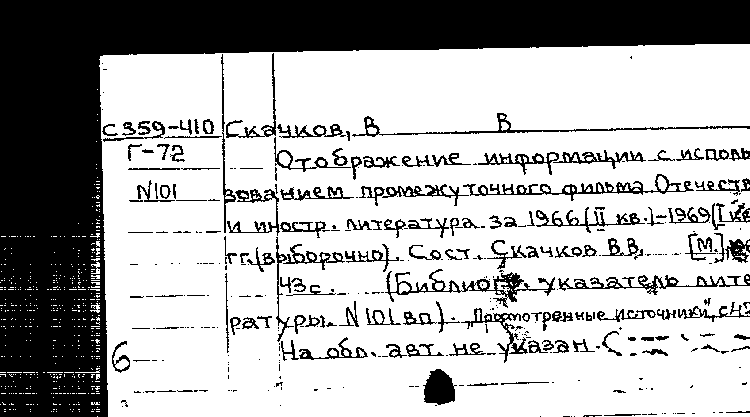 С359-410 Скачков, В В
Г-72 Отображение информации с исполь
N101 зованием промежуточного фильма. Отечеств
и иностр. литература за 1966 (II кв.)-1969 (I кв
гг. (выборочно). Сост. Скачков В.В. [М.],
43с. (Библиогр. указатель лите
ратуры. N 101 вп). „Просмотренные источники", с.42
На обл. авт. не указан.
6